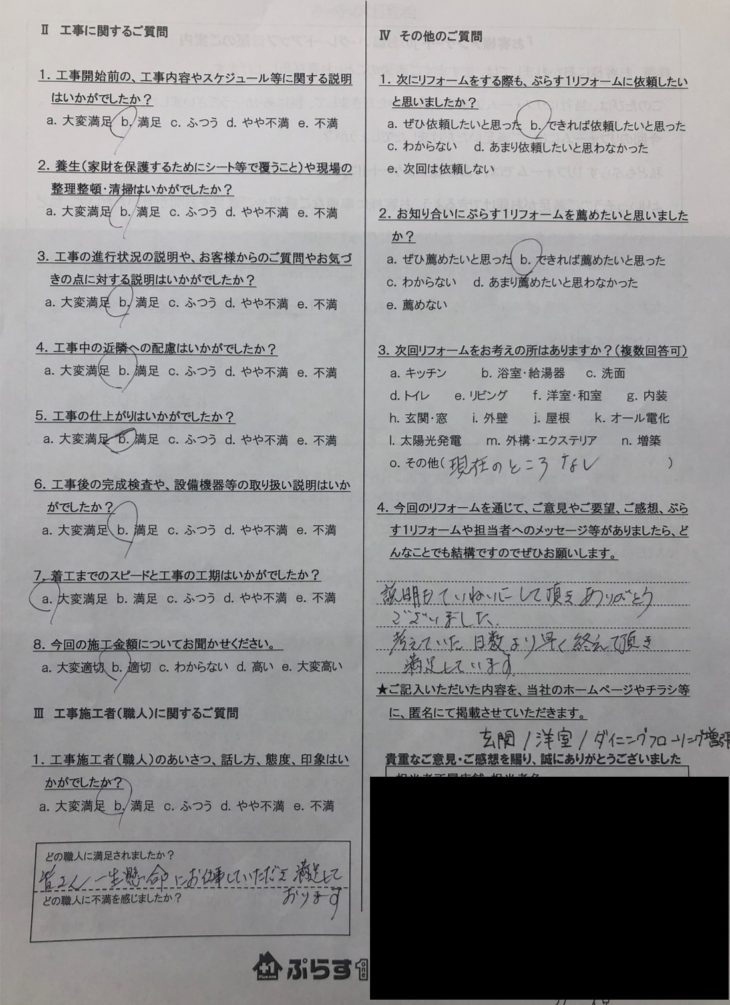 Ⅱ 工事に関するご質問
1. 工事開始前の、工事内容やスケジュール等に関する説明
はいかがでしたか?
a. 大変満足 b. 満足 c. ふつう d. やや不満 e. 不満
2. 養生(家財を保護するためにシート等で覆うこと)や現場の
整理整頓・清掃はいかがでしたか?
a. 大変満足 b. 満足 c. ふつう d. やや不満 e. 不満
3. 工事の進行状況の説明や、お客様からのご質問やお気づ
きの点に対する説明はいかがでしたか?
a. 大変満足 b. 満足 c. ふつう d. やや不満 e. 不満
4. 工事中の近隣への配慮はいかがでしたか?
a. 大変満足 b. 満足 c. ふつう d. やや不満 e. 不満
5. 工事の仕上がりはいかがでしたか?
a. 大変満足 b. 満足 c. ふつう d. やや不満 e. 不満
6. 工事後の完成検査や、設備機器等の取り扱い説明はいか
がでしたか?
a. 大変満足 b. 満足 c. ふつう d. やや不満 e. 不満
7. 着工までのスピードと工事の工期はいかがでしたか?
a. 大変満足 b. 満足 c. ふつう d. やや不満 e. 不満
8. 今回の施工金額についてお聞かせください。
a. 大変適切 b. 適切 c. わからない d. 高い e. 大変高い
Ⅲ 工事施工者(職人)に関するご質問
1. 工事施工者(職人)のあいさつ、話し方、態度、印象はい
かがでしたか?
a. 大変満足 b. 満足 c. ふつう d. やや不満 e. 不満
どの職人に満足されましたか?
皆さん一生懸命にお仕事していただき満足して
おります
どの職人に不満を感じましたか?
+1 ぷらす1 one
Ⅳ その他のご質問
1. 次にリフォームをする際も、ぷらす1リフォームに依頼したい
と思いましたか?
a. ぜひ依頼したいと思った b. できれば依頼したいと思った
c. わからない d. あまり依頼したいと思わなかった
e. 次回は依頼しない
2. お知り合いにぷらす1リフォームを薦めたいと思いました
か?
a. ぜひ薦めたいと思った b. できれば薦めたいと思った
c. わからない d. あまり薦めたいと思わなかった
e. 薦めない
3. 次回リフォームをお考えの所はありますか?(複数回答可)
a. キッチン b. 浴室・給湯器 c. 洗面
d. トイレ e. リビング f. 洋室・和室 g. 内装
h. 玄関・窓 i. 外壁 j. 屋根 k. オール電化
l. 太陽光発電 m. 外構・エクステリア n. 増築
o. その他(現在のところ なし )
4. 今回のリフォームを通じて、ご意見やご要望、ご感想、ぷら
す1リフォームや担当者へのメッセージ等がありましたら、ど
んなことでも結構ですのでぜひお願いします。
説明もていねいにして頂きありがとう
ございました。
考えていた日数より早く終えて頂き
満足しています
★ご記入いただいた内容を、当社のホームページやチラシ等
に、匿名にて掲載させていただきます。
玄関/洋室/ダイニングフローリング増張
貴重なご意見・ご感想を賜り、誠にありがとうございました